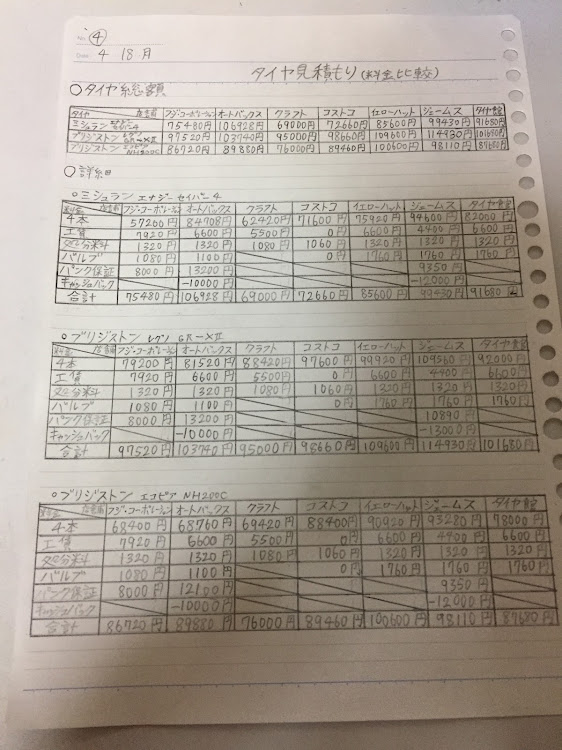 No. ④
Date 4 18 月
タイヤ見積もり(料金比較)
○タイヤ総額
タイヤ 店舗 フジ・コーポレーション オートバックス クラフト コストコ イエローハット ジェームス タイヤ館
ミシュラン 75480円 106928円 69000円 72660円 85600円 99430円 91680円
ブリジストン 97520円 103740円 95000円 98660円 109600円 114930円 101680円
ブリジストン エコピア NH200C 86720円 89880円 76000円 89460円 100600円 98110円 87680円
○詳細
○ミシュラン エナジー セイバー4
料金 店舗 フジ・コーポレーション オートバックス クラフト コストコ イエローハット ジェームス タイヤ館
4本 57200円 84708円 62420円 71600円 75920円 94600円 82000円
工賃 7920円 6600円 5500円 0円 6600円 4400円 6600円
処分料 1320円 1320円 1080円 1060円 1320円 1320円 1320円
バルブ 1080円 1100円 0円 1760円 1760円 1760円
パンク保証 8000円 13200円 9350円
キャッシュバック -10000円 -12000円
合計 75480円 106928円 69000円 72660円 85600円 99430円 91680円
○ブリジストン レグノ GR-XII
料金 店舗 フジ・コーポレーション オートバックス クラフト コストコ イエローハット ジェームス タイヤ館
4本 79200円 81520円 88420円 97600円 99920円 109560円 92000円
工賃 7920円 6600円 5500円 0円 6600円 4400円 6600円
処分料 1320円 1320円 1080円 1060円 1320円 1320円 1320円
バルブ 1080円 1100円 0円 1760円 1760円 1760円
パンク保証 8000円 13200円 10890円
キャッシュバック -10000円 -13000円
合計 97520円 103740円 95000円 98660円 109600円 114930円 101680円
○ブリジストン エコピア NH200C
料金 店舗 フジ・コーポレーション オートバックス クラフト コストコ イエローハット ジェームス タイヤ館
4本 68400円 68760円 69420円 88400円 90920円 93280円 78000円
工賃 7920円 6600円 5500円 0円 6600円 4400円 6600円
処分料 1320円 1320円 1080円 1060円 1320円 1320円 1320円
バルブ 1080円 1100円 0円 1760円 1760円 1760円
パンク保証 8000円 12100円 9350円
キャッシュバック -10000円 -12000円
合計 86720円 89880円 76000円 89460円 100600円 98110円 87680円